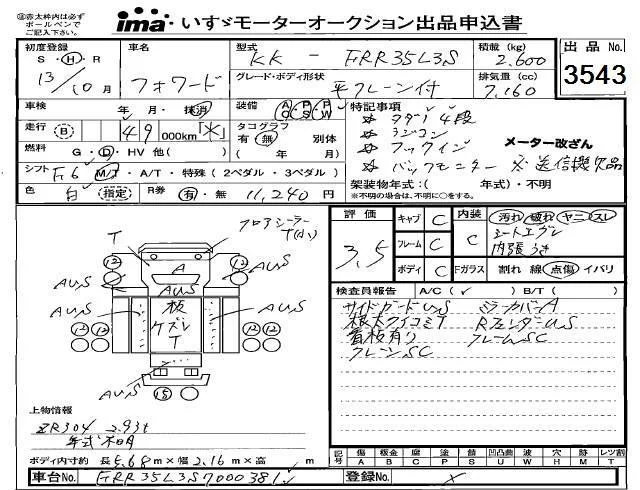 ㊟赤太枠内は必ず
ボールペンで
ご記入下さい。
ima いすゞモーターオークション出品申込書
初度登録 車名 型式 積載(kg) 出品No.
S・H・R 13/10月 フォワード KK-FRR35L3S 2,600
3543
グレード・ボディ形状 平 クレーン付 排気量(cc) 7,160
車検 年 月・抹消 装備 AC PS PW 特記事項
走行 B 49 000km「※」 タコグラフ 有・無 別体 ( 年 月)
燃料 G・D・HV 他( )
シフト F6 M/T・A/T・特殊(2ペダル・3ペダル)
色 白 (指定) R券 有・無 11,240円
☆ タダノ 4段
☆ ラジコン
☆ フックイン メーター改ざん
☆ バックモニター ※送信機欠品
架装物年式:( 年式)・不明
※不明の場合は、不明に○をする。
フロアシーラー
T(小)
T
A
AU,S AU,S
板
ケズレ
T
AU,S AU,S
AU,S AU,S
12 12
12 12 12 12
15
上物情報
ZR304 2.93t
年式不明
ボディ内寸約 長5.68m×幅2.16m×高 m
評価 3.5
キャブ C 内装 C 汚れ 破れ ヤニ スレ
フレーム C シートエグレ
内張うき
ボディ C Fガラス S 割れ 線 点傷 イバリ
検査員報告 A/C(✓) B/T( )
サイドガードUS ミラーカバーA
根太クイコミT RフェンダーUS
看板有り フレームSC
クレーンSC
記号 傷 A 板金 B 腐 C 塗 P 錆 S 凹凸曲 U 波 W 穴 H 跡 M レツ割 T
車台No. FRR35L3S7000381 登録No.